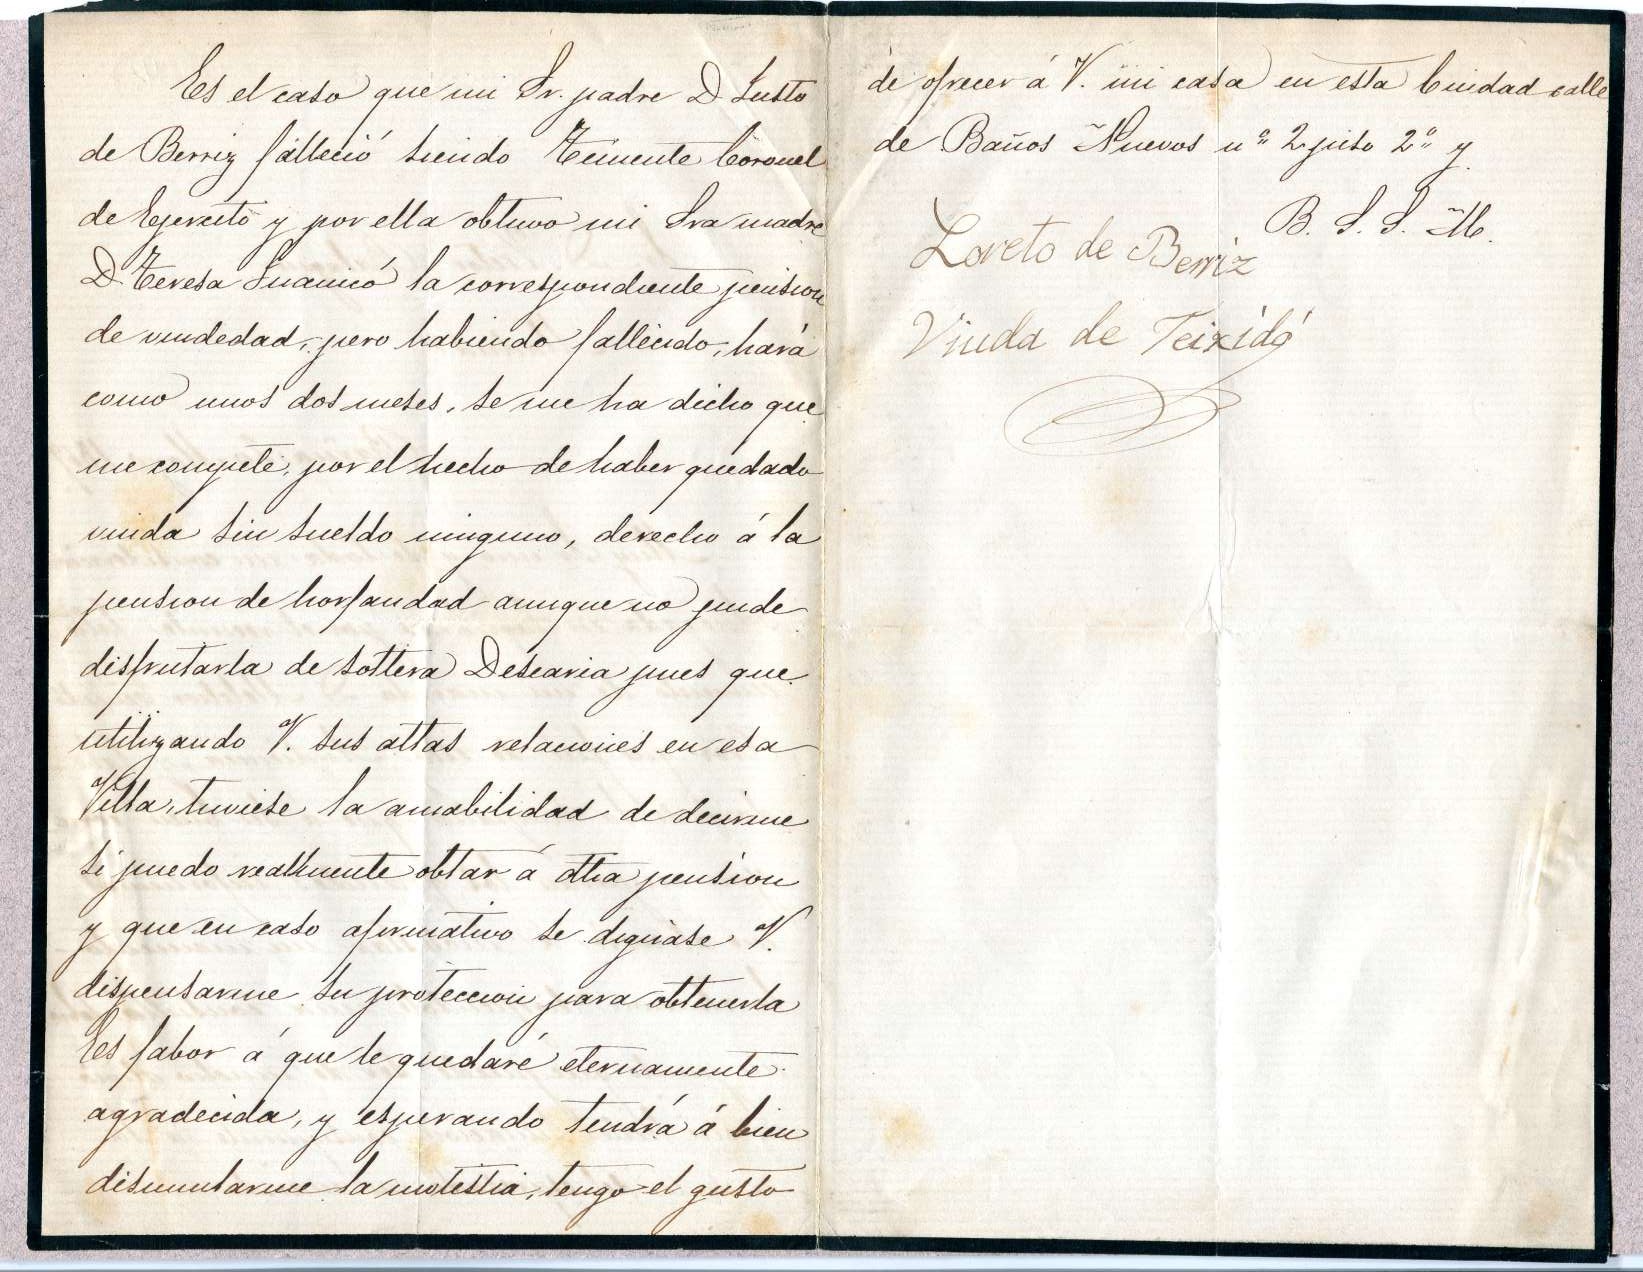 Es el caso que mi Sr. padre D Justo
de Berriz falleció siendo Teniente Coronel
de Ejercito y por ella obtuvo mi Sra madre
D Teresa Juanicó la correspondiente pension
de viudedad, pero habiendo fallecido, hará
como unos dos meses, se me ha dicho que
me compete, por el hecho de haber quedado
viuda sin sueldo ninguno, derecho á la
pension de horfandad aunque no pude
disfrutarla de soltera Desearia pues que
utilizando V. sus altas relaciones en esa
Villa, tuviese la amabilidad de decirme
si puedo realmente obtar á dha pension
y que en caso afirmativo se dignase V.
dispensarme su proteccion para obtenerla
Es fabor á que le quedaré eternamente
agradecida, y esperando tendrá á bien
disimularme la molestia, tengo el gusto
de ofrecer á V. mi casa en esta Ciudad calle
de Baños Nuevos nº 2 piso 2º y
B. S. S. M.
Loreto de Berriz
Viuda de Teixidó